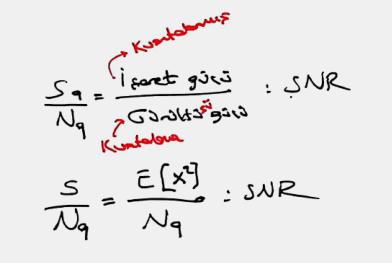 Kuantalanmış
Sq / Nq = İşaret gücü / Gürültü gücü : SNR
Kuantalama
S / Nq = E[x²] / Nq : SNR